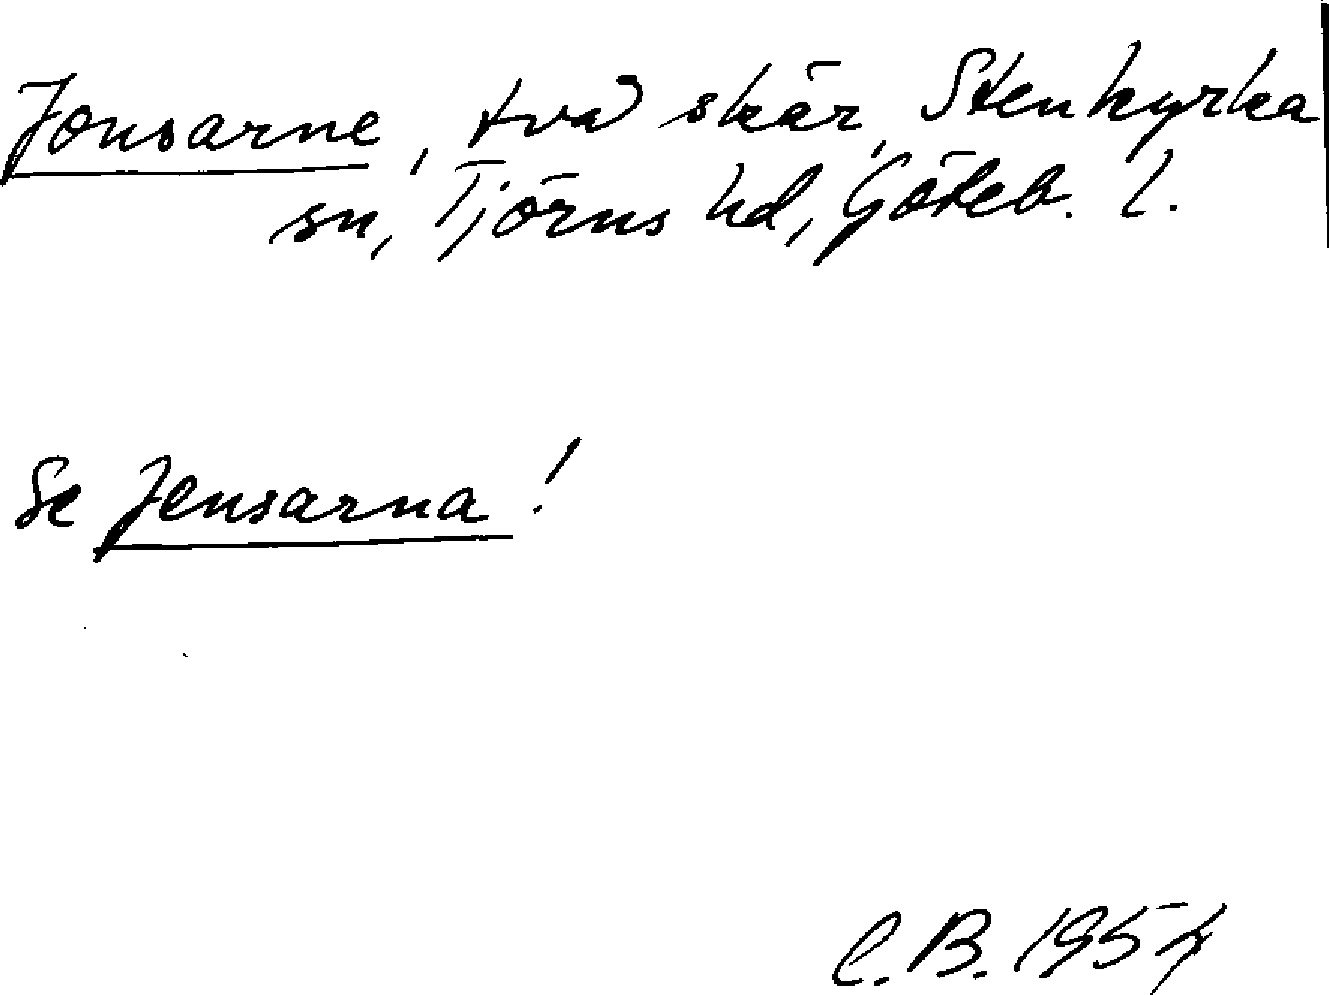 Jonsarne, två skär, Stenkyrka
sn, Tjörns hd, Göteb. l.
Se Jensarna!
C.B. 1954